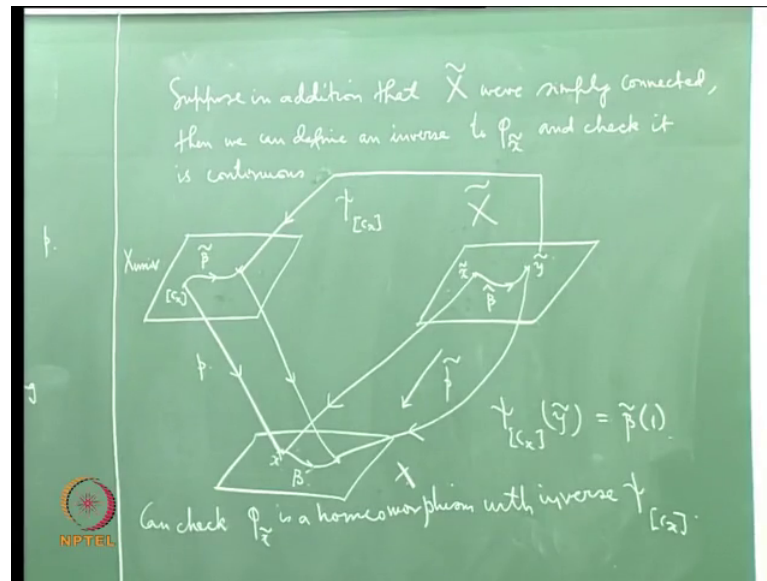 Suppose in addition that X̃ were simply connected,
then we can define an inverse to φ_x̃ and check it
is continuous
p.
ψ_[c_x]
X̃
X_univ
β̃
[c_x]
x̃
β̂
ỹ
p.
p̃
ψ_[c_x](ỹ) = β̃(1)
x
β
X
Can check φ_x̃ is a homeomorphism with inverse ψ_[c_x].
NPTEL